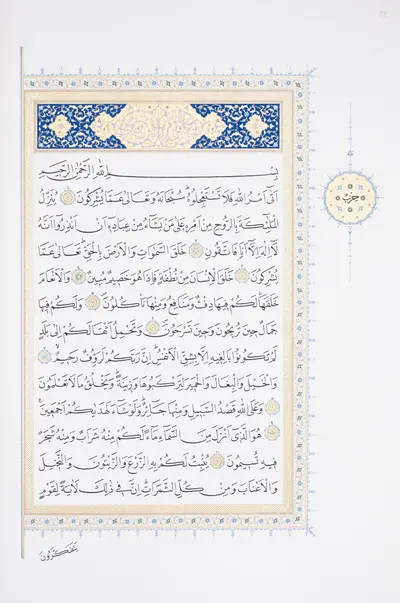 بِسْمِ اللهِ الرَّحْمٰنِ الرَّحِيمِ
اَتٰى اَمْرُ اللهِ فَلَا تَسْتَعْجِلُوهُ سُبْحَانَهُ وَتَعَالٰى عَمَّا يُشْرِكُونَ يُنَزِّلُ
الْمَلٰئِكَةَ بِالرُّوحِ مِنْ اَمْرِهِ عَلٰى مَنْ يَشَاءُ مِنْ عِبَادِهِ اَنْ اَنْذِرُوا اَنَّهُ
لَا اِلٰهَ اِلَّا اَنَا فَاتَّقُونِ خَلَقَ السَّمٰوَاتِ وَالْاَرْضَ بِالْحَقِّ تَعَالٰى عَمَّا
يُشْرِكُونَ خَلَقَ الْاِنْسَانَ مِنْ نُطْفَةٍ فَاِذَا هُوَ خَصِيمٌ مُبِينٌ وَالْاَنْعَامَ
خَلَقَهَا لَكُمْ فِيهَا دِفْءٌ وَمَنَافِعُ وَمِنْهَا تَأْكُلُونَ وَلَكُمْ فِيهَا
جَمَالٌ حِينَ تُرِيحُونَ وَحِينَ تَسْرَحُونَ وَتَحْمِلُ اَثْقَالَكُمْ اِلٰى بَلَدٍ
لَمْ تَكُونُوا بَالِغِيهِ اِلَّا بِشِقِّ الْاَنْفُسِ اِنَّ رَبَّكُمْ لَرَؤُفٌ رَحِيمٌ
وَالْخَيْلَ وَالْبِغَالَ وَالْحَمِيرَ لِتَرْكَبُوهَا وَزِينَةً وَيَخْلُقُ مَا لَا تَعْلَمُونَ
وَعَلَى اللهِ قَصْدُ السَّبِيلِ وَمِنْهَا جَائِرٌ وَلَوْ شَاءَ لَهَدٰيكُمْ اَجْمَعِينَ
هُوَ الَّذِي اَنْزَلَ مِنَ السَّمَاءِ مَاءً لَكُمْ مِنْهُ شَرَابٌ وَمِنْهُ شَجَرٌ
فِيهِ تُسِيمُونَ يُنْبِتُ لَكُمْ بِهِ الزَّرْعَ وَالزَّيْتُونَ وَالنَّخِيلَ
وَالْاَعْنَابَ وَمِنْ كُلِّ الثَّمَرَاتِ اِنَّ فِي ذٰلِكَ لَاٰيَةً لِقَوْمٍ
يَتَفَكَّرُونَ
حِزْبٌ